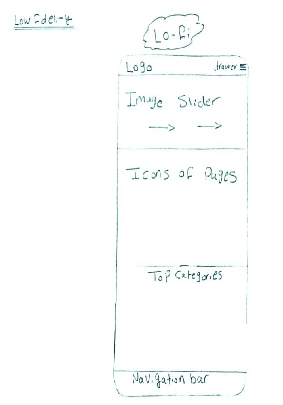 Low Fdeli-y
Lo-Fi
Logo drawer
Image Slider
Icons of Pages
Top Categories
Navigation bar